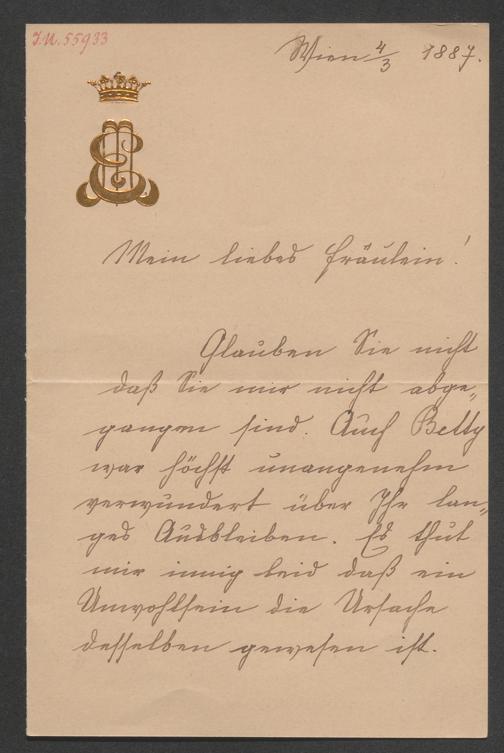 J.N. 55933
Wien 4/3 1887.
Mein liebes Fräulein!
Glauben Sie nicht
daß Sie mir nicht abge„
gangen sind. Auch Betty
war höchst unangenehm
verwundert über Ihr lan„
ges Ausbleiben. Es thut
mir innig leid daß ein
Unwohlsein die Ursache
desselben gewesen ist.